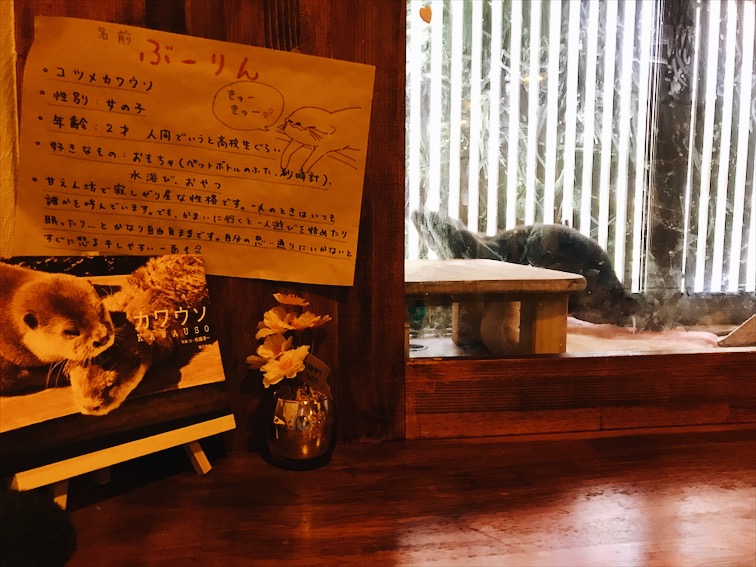 名前 ぶーりん
• コツメカワウソ
• 性別：女の子
• 年齢：2才 人間でいうと高校生ぐらい
• 好きなもの：おもちゃ(ペットボトルのふた、砂時計)、
水浴び、おやつ
• 甘えん坊で寂しがり屋な性格です。一人のときはいつも
誰かを呼んでいます。でも、かまいに行くと一人遊びを始めたり
眠ったり…と かなり自由気ままです。自分の思い通りにいかないと
すぐに怒る
きゅー
きゅー
カワウソ
KAWAUSO